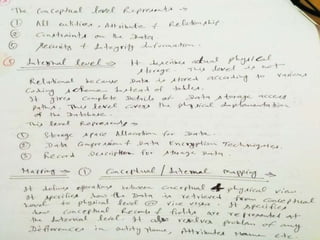 The Conceptual level Represents →
① All entities, Attribute & Relationship
② Constraints on the Data
③ Security & Integrity Information.
③ Internal level → It describes actual physical
storage. This level is not
Relational because Data is stored according to various
Coding scheme instead of tables.
It gives complete Details of Data storage access
paths. This level covers the physical implementation
of the Database.
This level Represents →
① Storage space Allocation for Data.
② Data Compression & Data Encryption Techniques.
③ Record Description for storage Data.
Mapping → ① Conceptual / Internal Mapping →
It defines operations between conceptual & physical view.
It specifies how the Data is retrieved from Conceptual
level to physical level & vice versa. It specifies
how conceptual Records & fields are represented at
the Internal level. It also resolves problem of any
Differences in entity Name, Attributes Names etc.